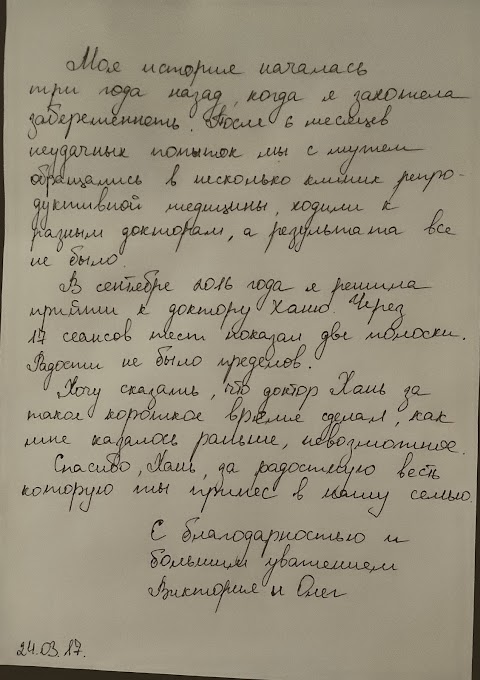 Моя история началась
три года назад, когда я захотела
забеременеть. После 6 месяцев
неудачных попыток мы с мужем
обращались в несколько клиник репро-
дуктивной медицины, ходили к
разным докторам, а результата все
не было.
В сентябре 2016 года я решила
прийти к доктору Ханю. Через
17 сеансов тест показал две полоски.
Радости не было пределов.
Хочу сказать, что доктор Хань за
такое короткое время сделал, как
мне казалось раньше, невозможное.
Спасибо, Хань, за радостную весть
которую ты принес в нашу семью.
С благодарностью и
большим уважением
Виктория и Олег
24.03.17.